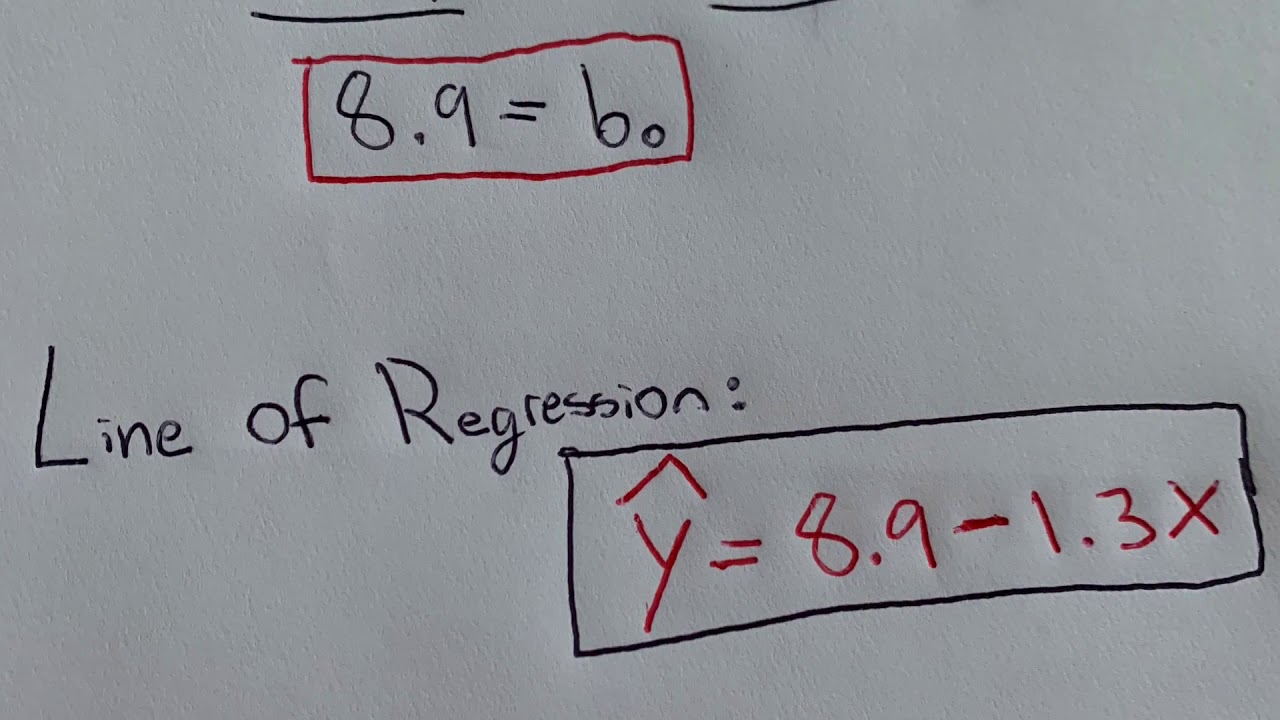 8.9 = b₀
Line of Regression:
ŷ = 8.9 - 1.3x